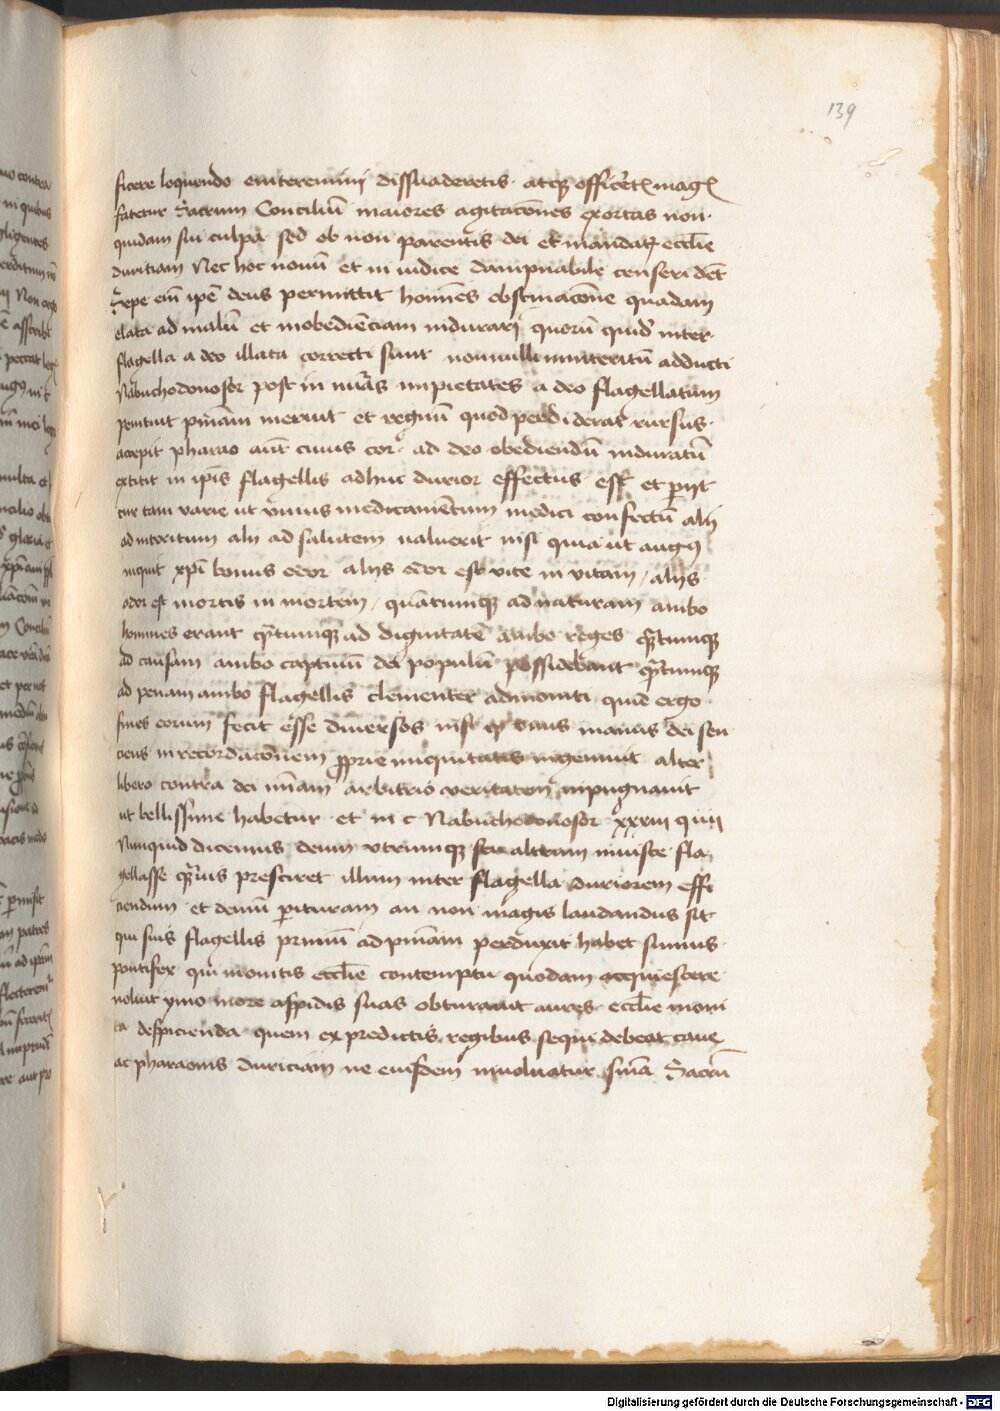 139
ficere loquendo eniteremini dissuaderetis atq̃ officẽt magꝭ
fatetur Sacrum Conciliũ maiores agitacõnes exortas non
quidam sui culpa sed ob non parentis dei et mandatꝭ eccl̃ie
duritiam Nec hoc nouũ et in iudice dampnabile censeri dẽt
Sepe em̃ ip̃e deus permittit homĩes obstinacõne quadam
elata ad malũ et inobediẽciam indurari quorũ quid̃ inter
flagella a deo illata correcti sunt nonnulli in interitũ adducti
Nabuchodonosor post in nũas impietates a deo flagellatum
penituit pñiam meruit et regnũ quod perdiderat rursus
accepit pharao aũt cuius cor ad deo obediendũ induratũ
extitit in ip̃is flagellis adhuc durior effectus est et perijt
cur tam varie ut vnius medicamentum medici confectũ alij
ad interitum alij ad salutem ualuerit nisi quia ut augꝰ
inquit xp̃i bonus odor alijs odor est vite in vitam / alijs
odor est mortis in mortem / quãtumq̃ ad naturam ambo
homines erant q̃tumq̃ ad dignitatẽ ambo reges q̃tumq̃
ad causam ambo captiuũ dei populũ possidebant q̃tumq̃
ad penam ambo flagellis clementer admoniti quid ergo
fines eorum fecit esse diuersos nisi qꝫ vnus manus dei sen
ciens in recordacõnem p̱prie iniquitatis ingemuit alter
libero contra dei m̃iam arbitrio veritatem inpugnauit
ut bellissime habetur et in c Nabuchodonosor xxiii q iiii
Nunquid dicemus deum vtrumq̃ seu alterum iniuste fla
gellasse q̃uis presciret illum inter flagella duriorem effi
ciendum et demũ periturum an non magis laudandus sit
qui suis flagellis primũ ad pñiam perduxit habet sumus
pontifex qui monitis eccl̃ie contemptu quodam acquiescere
noluit ymo more aspidis suas obturauit aures eccl̃ie moni
ta despicienda quem ex predictis regibus sequi debeat caue
ac pharaonis duriciam ne eiusdem inuoluatur sñia Sacrũ
Digitalisierung gefördert durch die Deutsche Forschungsgemeinschaft - DFG